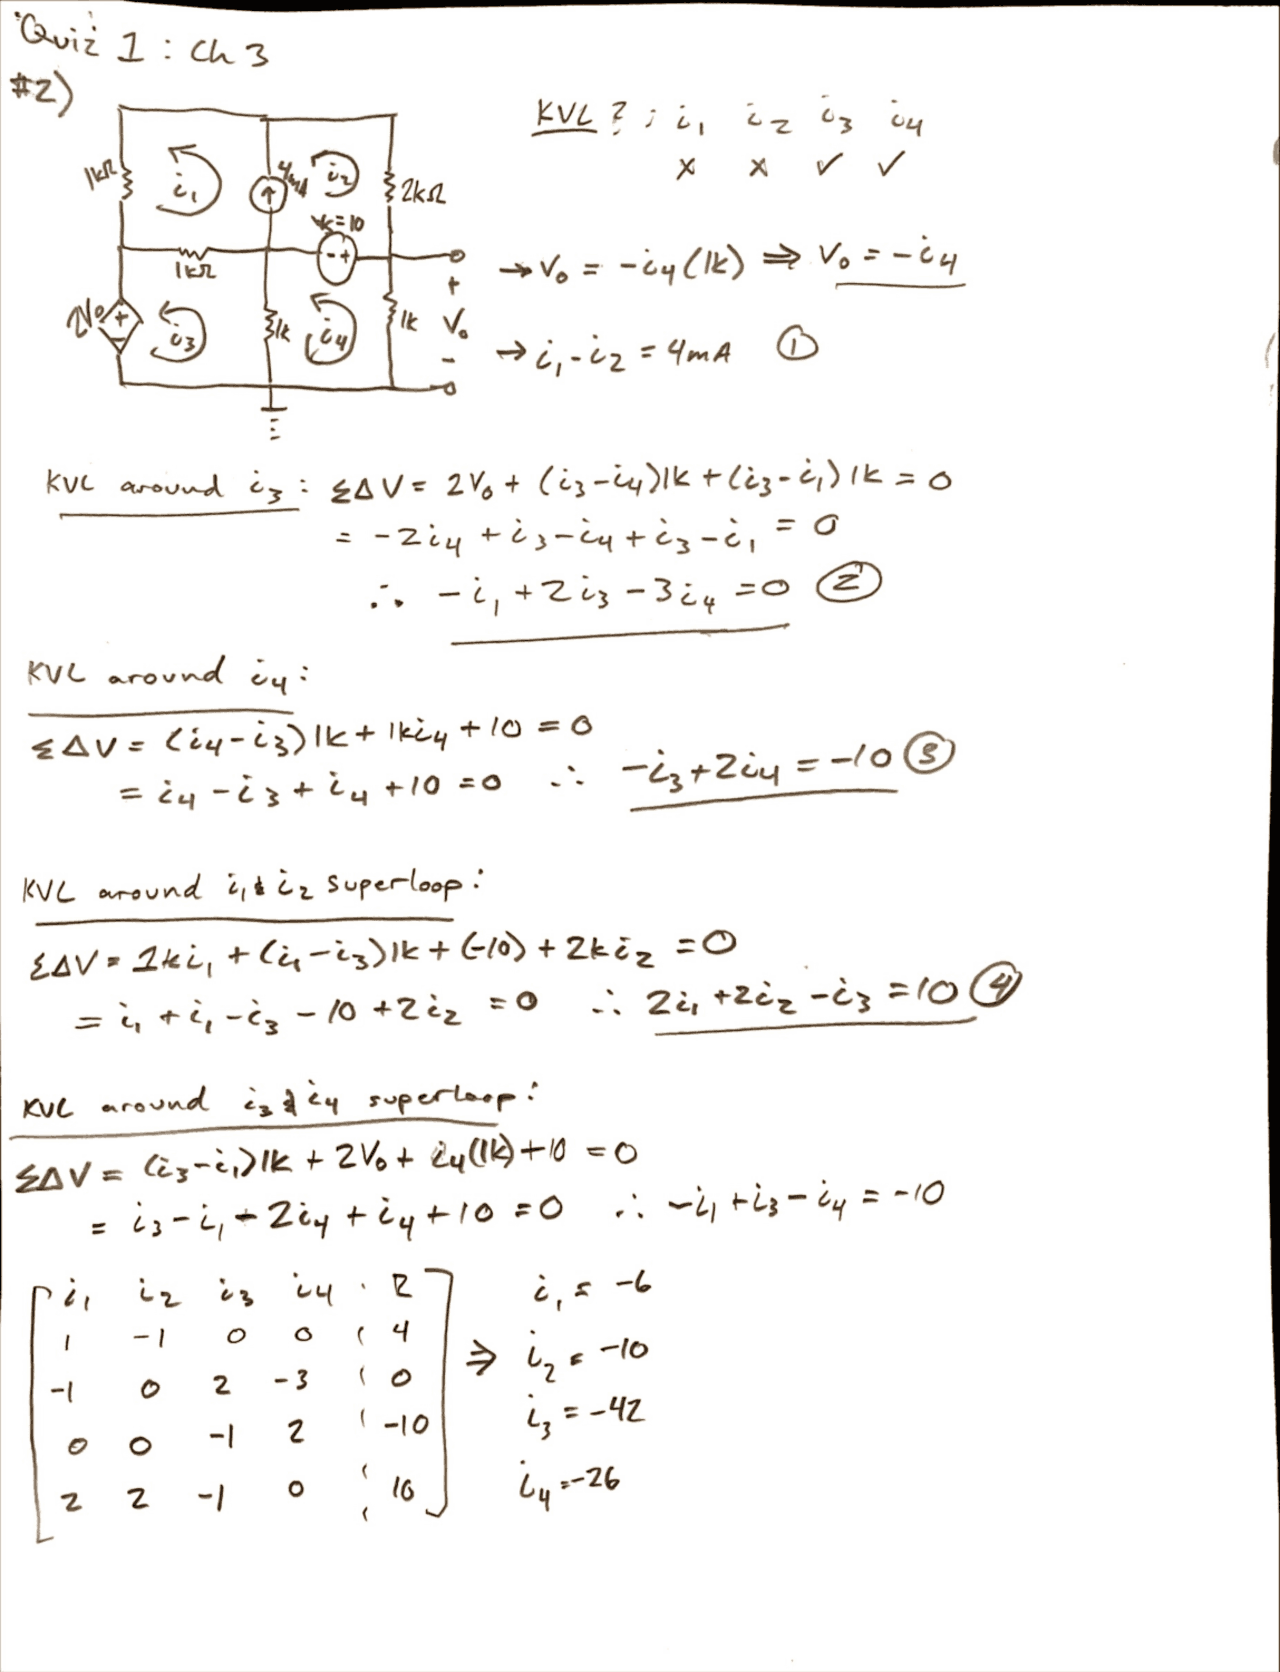 Quiz 1 : Ch 3
#2)
KVL? ; i₁ i₂ i₃ i₄
x x ✓ ✓
1kΩ
i₁
4mA
i₂
2kΩ
Vk=10
- +
1kΩ
→ V₀ = -i₄(1k) ⇒ V₀ = -i₄
2V₀
+
-
i₃
1k
i₄
1k
+
V₀
-
→ i₁ - i₂ = 4mA ①
KVL around i₃ : ΣΔV = 2V₀ + (i₃-i₄)1k + (i₃-i₁)1k = 0
= -2i₄ + i₃ - i₄ + i₃ - i₁ = 0
∴ -i₁ + 2i₃ - 3i₄ = 0 ②
KVL around i₄ :
ΣΔV = (i₄-i₃)1k + 1ki₄ + 10 = 0
= i₄ - i₃ + i₄ + 10 = 0 ∴ -i₃ + 2i₄ = -10 ③
KVL around i₁ & i₂ superloop :
ΣΔV = 1ki₁ + (i₁-i₃)1k + (-10) + 2ki₂ = 0
= i₁ + i₁ - i₃ - 10 + 2i₂ = 0 ∴ 2i₁ + 2i₂ - i₃ = 10 ④
KVL around i₃ & i₄ superloop :
ΣΔV = (i₃-i₁)1k + 2V₀ + i₄(1k) + 10 = 0
= i₃ - i₁ - 2i₄ + i₄ + 10 = 0 ∴ -i₁ + i₃ - i₄ = -10
i₁ i₂ i₃ i₄ R
1 -1 0 0 4
-1 0 2 -3 0
0 0 -1 2 -10
2 2 -1 0 10
⇒
i₁ = -6
i₂ = -10
i₃ = -42
i₄ = -26